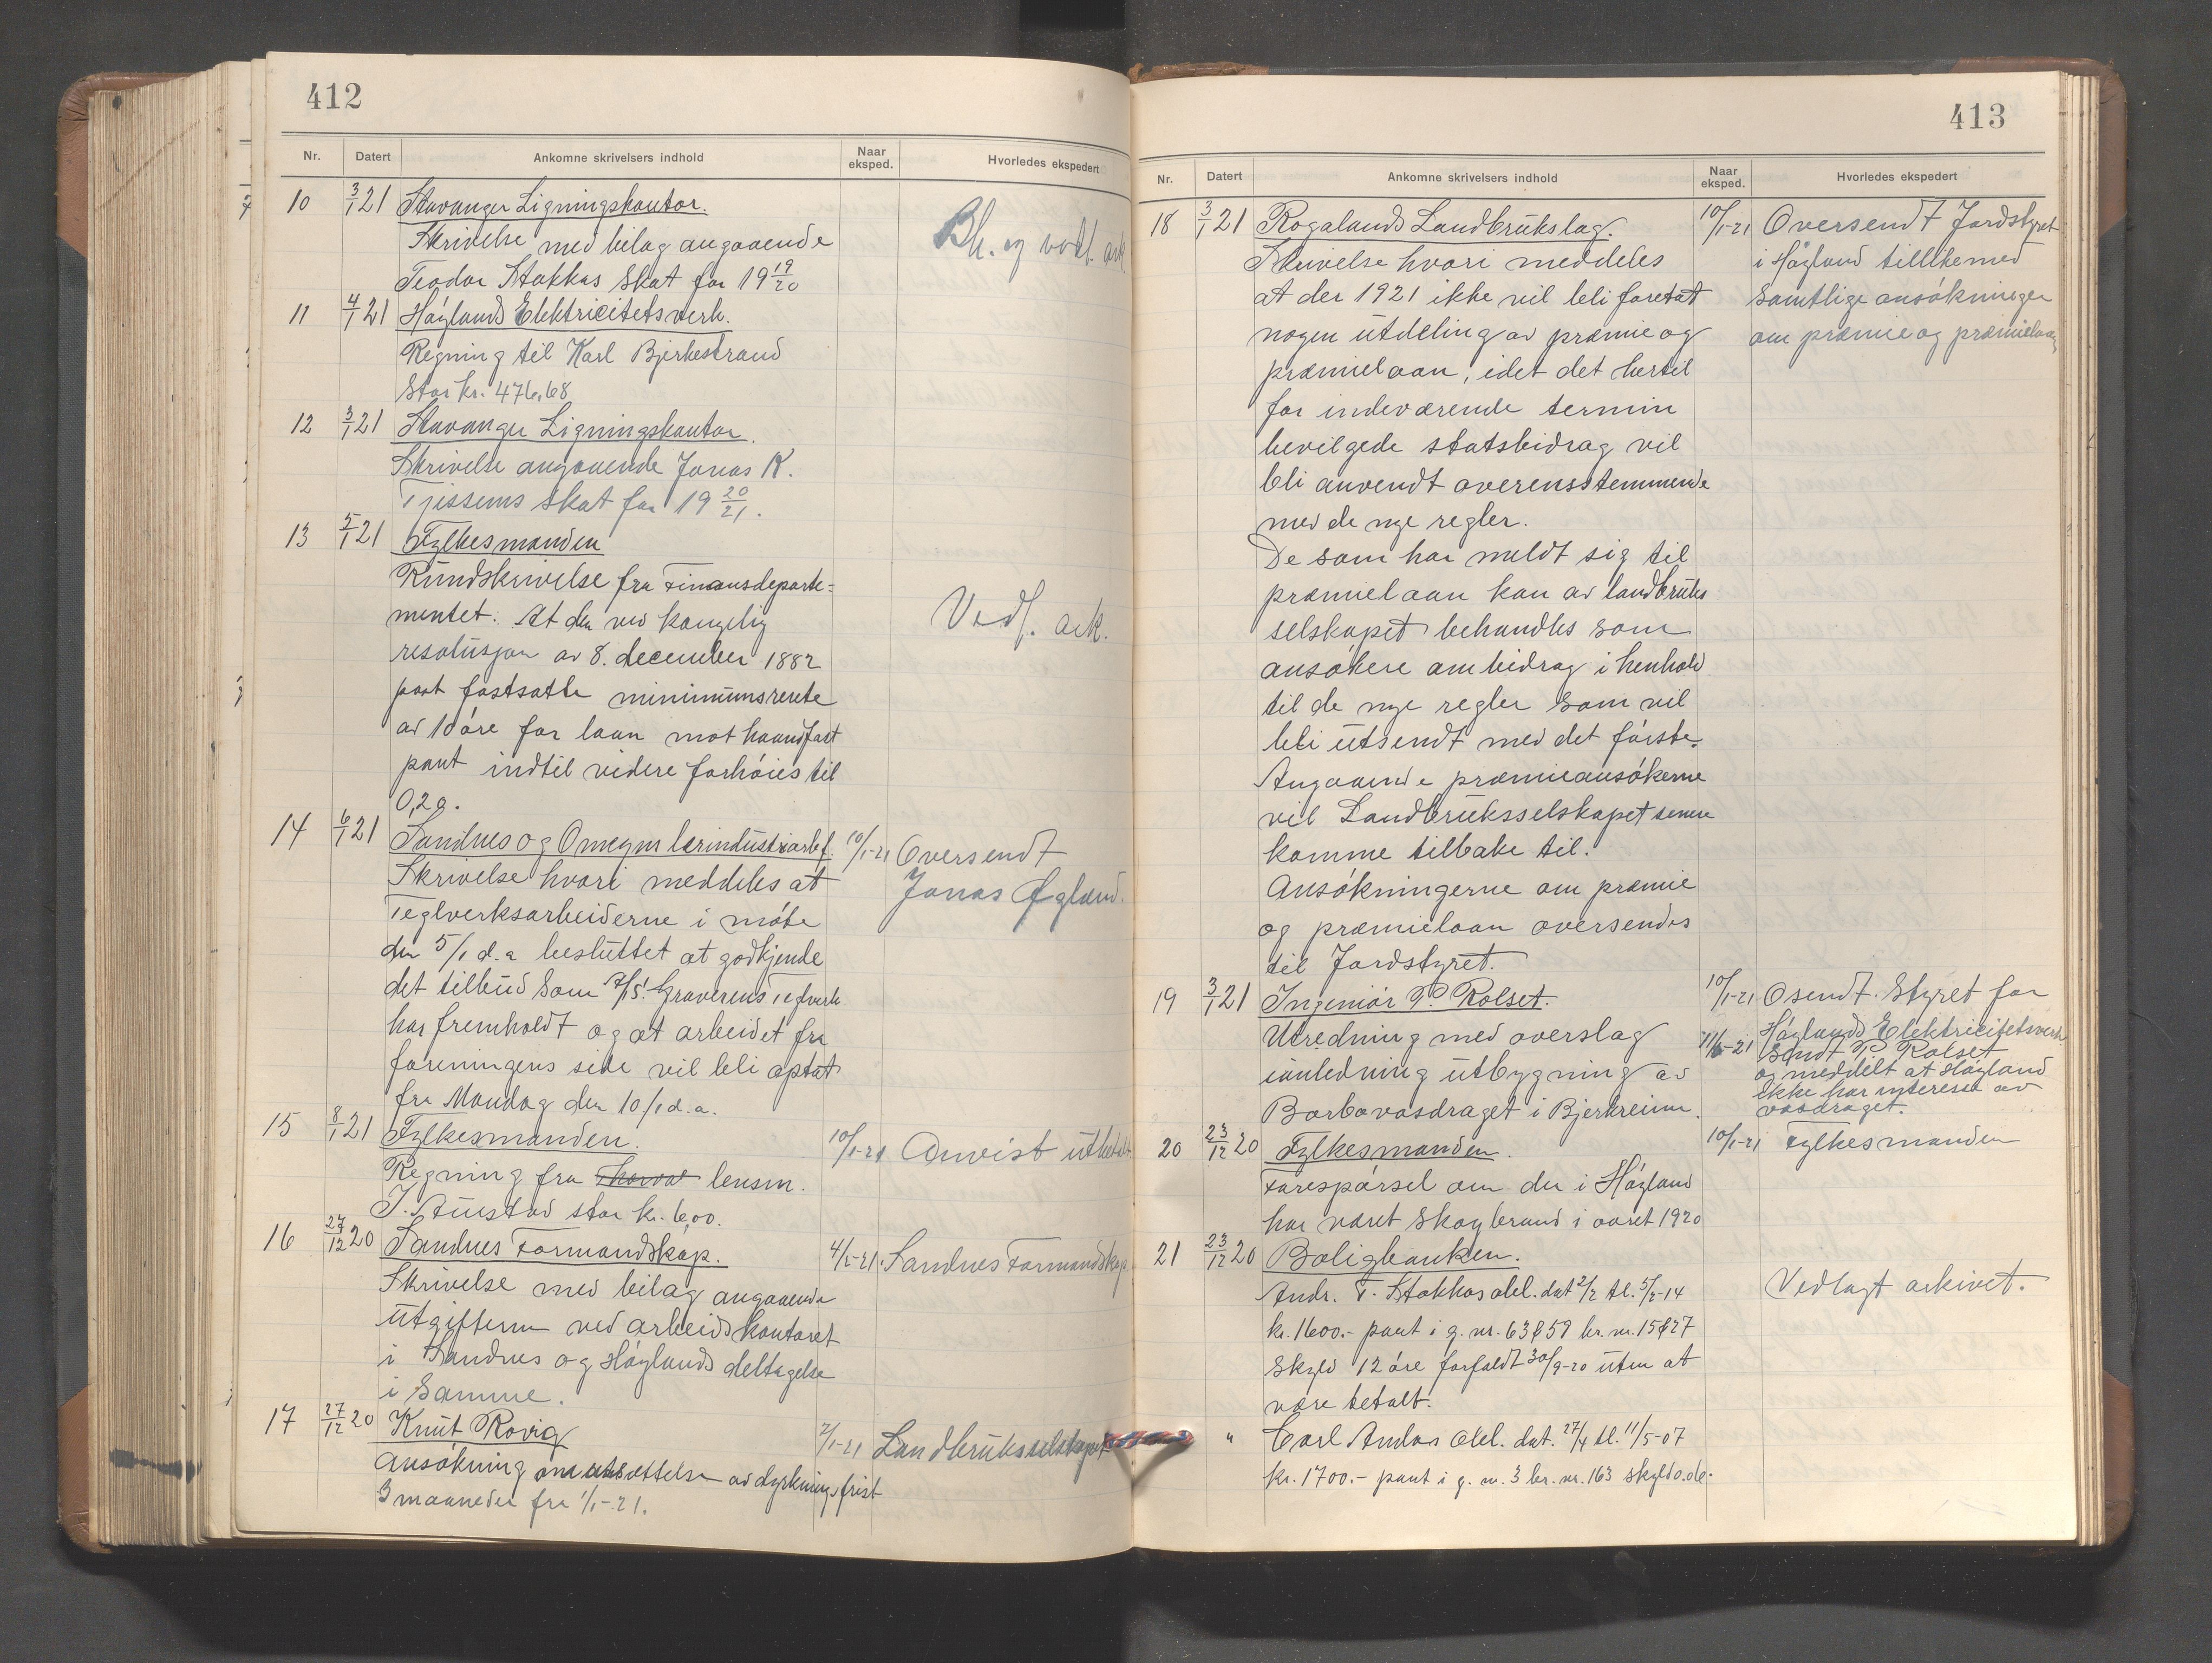 412
Nr. Datert Ankomne skrivelsers indhold Naar eksped. Hvorledes ekspedert
10 3/1 21 Stavanger Ligningskontor.
Skrivelse med bilag angaaende Bh. og vedl. ark.
Teodor Stokkas Skat for 19 19/20
11 4/1 21 Høylands Elektricitetsverk.
Regning til Karl Bjerkestrand
Stor kr. 476,68
12 3/1 21 Stavanger Ligningskontor.
Skrivelse angaaende Jonas K.
Tjissems Skat for 19 20/21.
13 5/1 21 Fylkesmanden
Rundskrivelse fra Finansdeparte-
mentet: At den ved kongelig Vedl. ark.
resolusjon av 8. december 1882
paat fastsatte minimumsrente
av 10 øre for laan mot haandfaat
pant indtil videre forhøies til
0,20.
14 6/1 21 Sandnes og Omegns lerindustriarbf. 10/1-21 Oversendt
Skrivelse hvori meddeles at Jonas Øglænd.
Teglverksarbeiderne i møte
den 5/1 d.a besluttet at godkjende
det tilbud Som A/S. Graverens Teglverk
har fremholdt og at arbeidet fra
foreningens side vil bli optat
fra Mandag den 10/1 d.a.
15 8/1 21 Fylkesmanden. 10/1-21 Anvist utbetalt
Regning fra lensm.
J. Austad stor kr. 6,00.
16 27/12 20 Sandnes Formandskap. 4/1-21. Sandnes Formandskap
Skrivelse med bilag angaaende
Utgifterne ved arbeidskontoret
i Sandnes og Høylands deltagelse
i Samme.
17 27/12 20 Knut Rovig 7/1-21 Landbruksselskapet
Ansøkning om utsættelse av dyrkningsfrist
3 maaneder fra 1/1-21.
413
Nr. Datert Ankomne skrivelsers indhold Naar eksped. Hvorledes ekspedert
18 3/1 21 Rogalands Landbrukslag. 10/1-21 Oversendt Jordstyret
Skrivelse hvori meddeles i Høyland tillikemed
at der 1921 ikke vil bli foretat Samtlige ansøkninger
nogen utdeling av præmie og om præmie og præmielaan
præmielaan, idet det hertil
for indeværende termin
bevilgede statsbidrag vil
bli anvendt overensstemmende
med de nye regler.
De som har meldt sig til
præmielaan kan av landbruks
selskapet behandles som
ansøkere om bidrag i henhold
til de nye regler Som vil
bli utsendt med det første.
Angaaende præmieansøkerne
vil Landbruksselskapet senere
komme tilbake til.
Ansøkningerne om præmie
og præmielaan oversendes
til Jordstyret.
19 3/1 21 Ingeniør P. Rolset. 10/1-21 Osendt. Styret for
Utredning med overslag Høylands Elektricitetsverk
ianledning utbygning av 11/5-21 Sendt P. Rolset
Barbovasdraget i Bjerkreim. og meddelt at Høyland
ikke har interesse av
vasdraget.
20 23/12 20 Fylkesmanden. 10/1-21 Fylkesmanden
Forespørsel om der i Høyland
har været Skogbrand i aaret 1920
21 23/12 20 Boligbanken.
Andr. T. Stokkas obl. dat 2/2 tl. 5/2-14 Vedlagt arkivet.
kr. 1600.- pant i g. nr. 63 & 59 br. nr. 15 & 27
Skyld 12 øre forfaldt 30/9-20 uten at
være betalt.
" Carl Andas Obl. dat. 27/4 tl. 11/5-07
kr. 1700.- pant i g. nr. 3 br. nr. 163 skyld o.de.